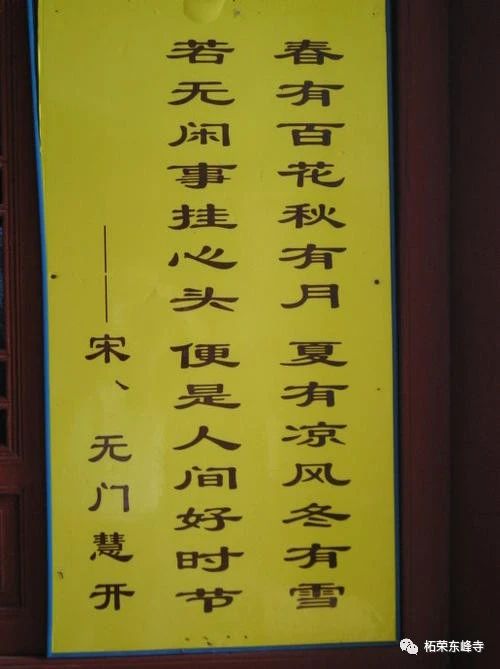 春有百花秋有月 夏有凉风冬有雪
若无闲事挂心头 便是人间好时节
——宋、无门慧开
柘荣东峰寺